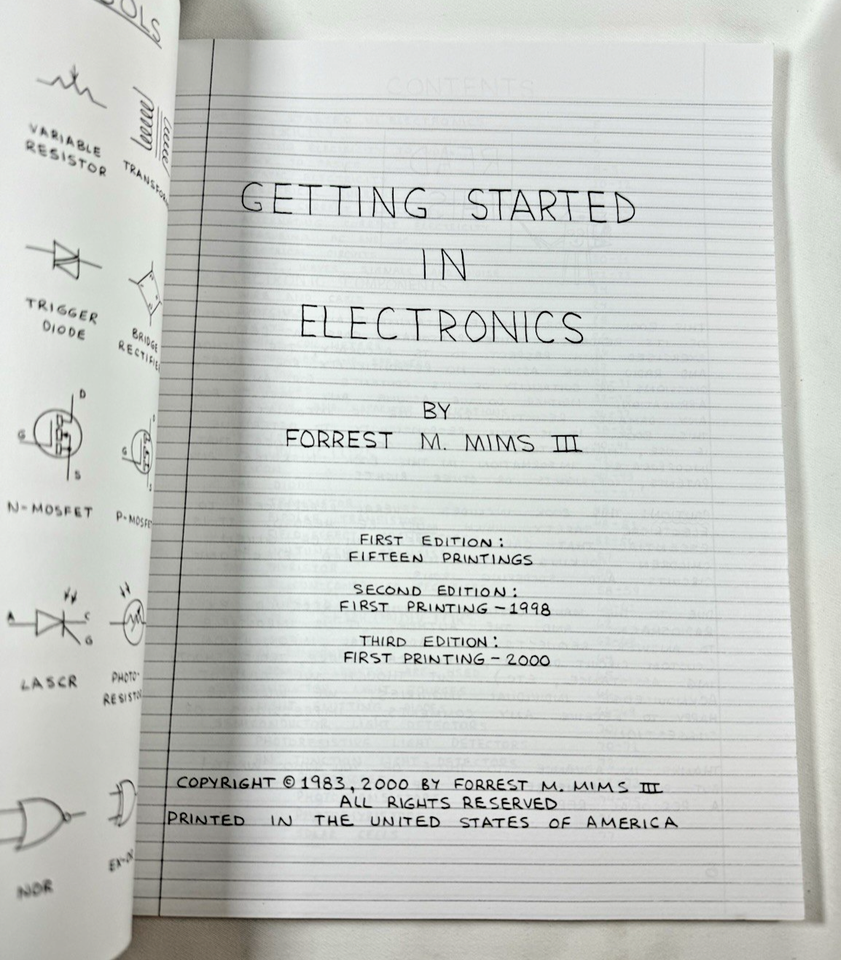 VARIABLE
RESISTOR
TRIGGER
DIODE
BRIDGE
D
G
S
N-MOSFET
G
A
C
G
LASCR
PHOTO-
NOR
GETTING STARTED
IN
ELECTRONICS
BY
FORREST M. MIMS III
FIRST EDITION:
FIFTEEN PRINTINGS
SECOND EDITION:
FIRST PRINTING - 1998
THIRD EDITION:
FIRST PRINTING - 2000
COPYRIGHT © 1983, 2000 BY FORREST M. MIMS III
ALL RIGHTS RESERVED
PRINTED IN THE UNITED STATES OF AMERICA